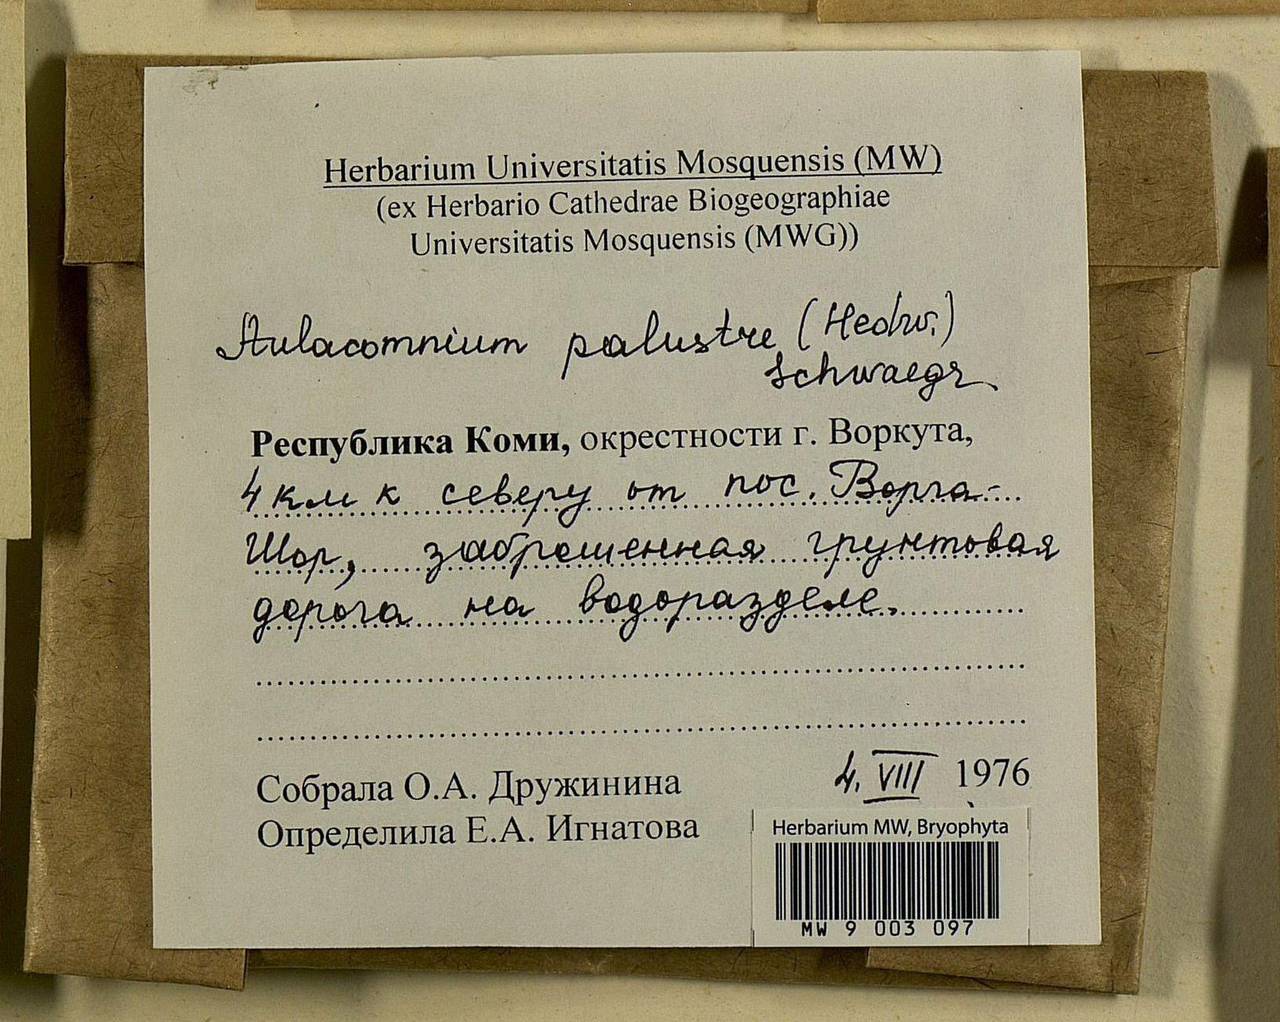 Herbarium Universitatis Mosquensis (MW)
(ex Herbario Cathedrae Biogeographiae
Universitatis Mosquensis (MWG))
Aulacomnium palustre (Hedw.)
Schwaegr.
Республика Коми, окрестности г. Воркута,
4 км к северу от пос. Ворга-
Шор, заброшенная грунтовая
дорога на водоразделе.
Собрала О.А. Дружинина 4. VIII 1976
Определила Е.А. Игнатова
Herbarium MW, Bryophyta
MW 9 003 097